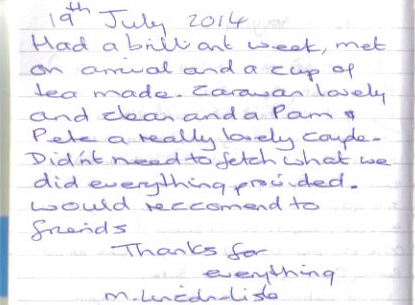 19th July 2014
Had a brilliant week, met
on arrival and a cup of
tea made. Caravan lovely
and clean and a Pam &
Pete a really lovely couple.
Didn't need to fetch what we
did everything provided.
would reccomend to
friends
Thanks for
everything
M.